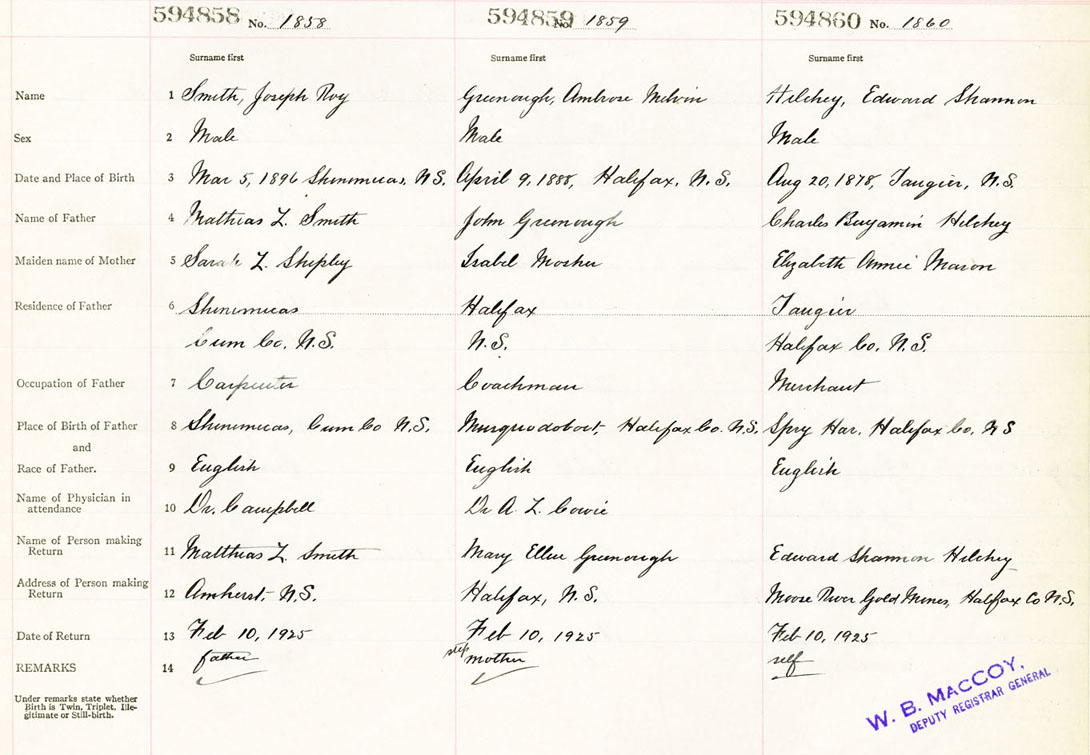 594858 No. 1858 594859 No. 1859 594860 No. 1860
Surname first Surname first Surname first
Name 1 Smith, Joseph Roy Greenough, Ambrose Melvin Hilchey, Edward Shannon
Sex 2 Male Male Male
Date and Place of Birth 3 Mar 5, 1896 Shinimicas, N.S. April 9, 1888, Halifax, N.S. Aug 20, 1878, Tangier, N.S.
Name of Father 4 Mathias L. Smith John Greenough Charles Benjamin Hilchey
Maiden name of Mother 5 Sarah L. Shipley Isabel Mosher Elizabeth Annie Mason
Residence of Father 6 Shinimicas Halifax Tangier
Cum Co. N.S. N.S. Halifax Co. N.S.
Occupation of Father 7 Carpenter Coachman Merchant
Place of Birth of Father 8 Shinimicas, Cum Co N.S. Musquodoboit, Halifax Co. N.S. Spry Har. Halifax Co. N S
and
Race of Father. 9 English English English
Name of Physician in
attendance 10 Dr. Campbell Dr A. L. Cowie
Name of Person making
Return 11 Matthias L. Smith Mary Ellen Greenough Edward Shannon Hilchey
Address of Person making
Return 12 Amherst, N.S. Halifax, N.S. Moose River Gold Mines, Halifax Co N.S.
Date of Return 13 Feb 10, 1925 Feb 10, 1925 Feb 10, 1925
REMARKS 14 father step mother self
Under remarks state whether
Birth is Twin, Triplet, Ille-
gitimate or Still-birth.
W. B. MACCOY,
DEPUTY REGISTRAR GENERAL